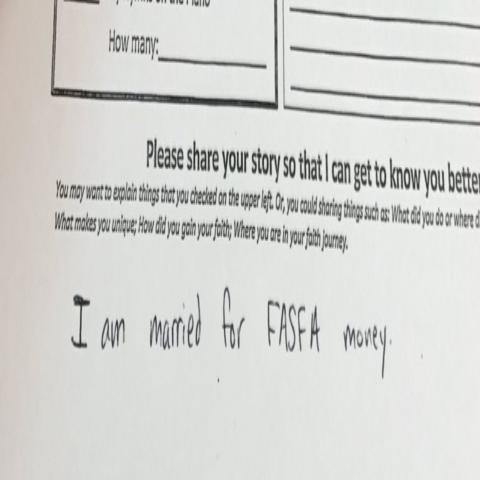 How many:
Please share your story so that I can get to know you better
You may want to explain things that you checked on the upper left. Or, you could sharing things such as: What did you do or where
What makes you unique; How did you gain your faith; Where you are in your faith journey.
I am married for FASFA money.